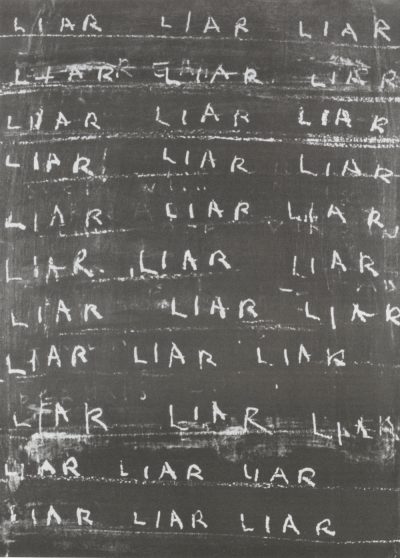 LIAR LIAR LIAR
LIAR LIAR LIAR
LIAR LIAR LIAR
LIAR LIAR LIAR
LIAR LIAR LIAR
LIAR LIAR LIAR
LIAR LIAR LIAR
LIAR LIAR LIAR
LIAR LIAR LIAR
LIAR LIAR LIAR
LIAR LIAR LIAR